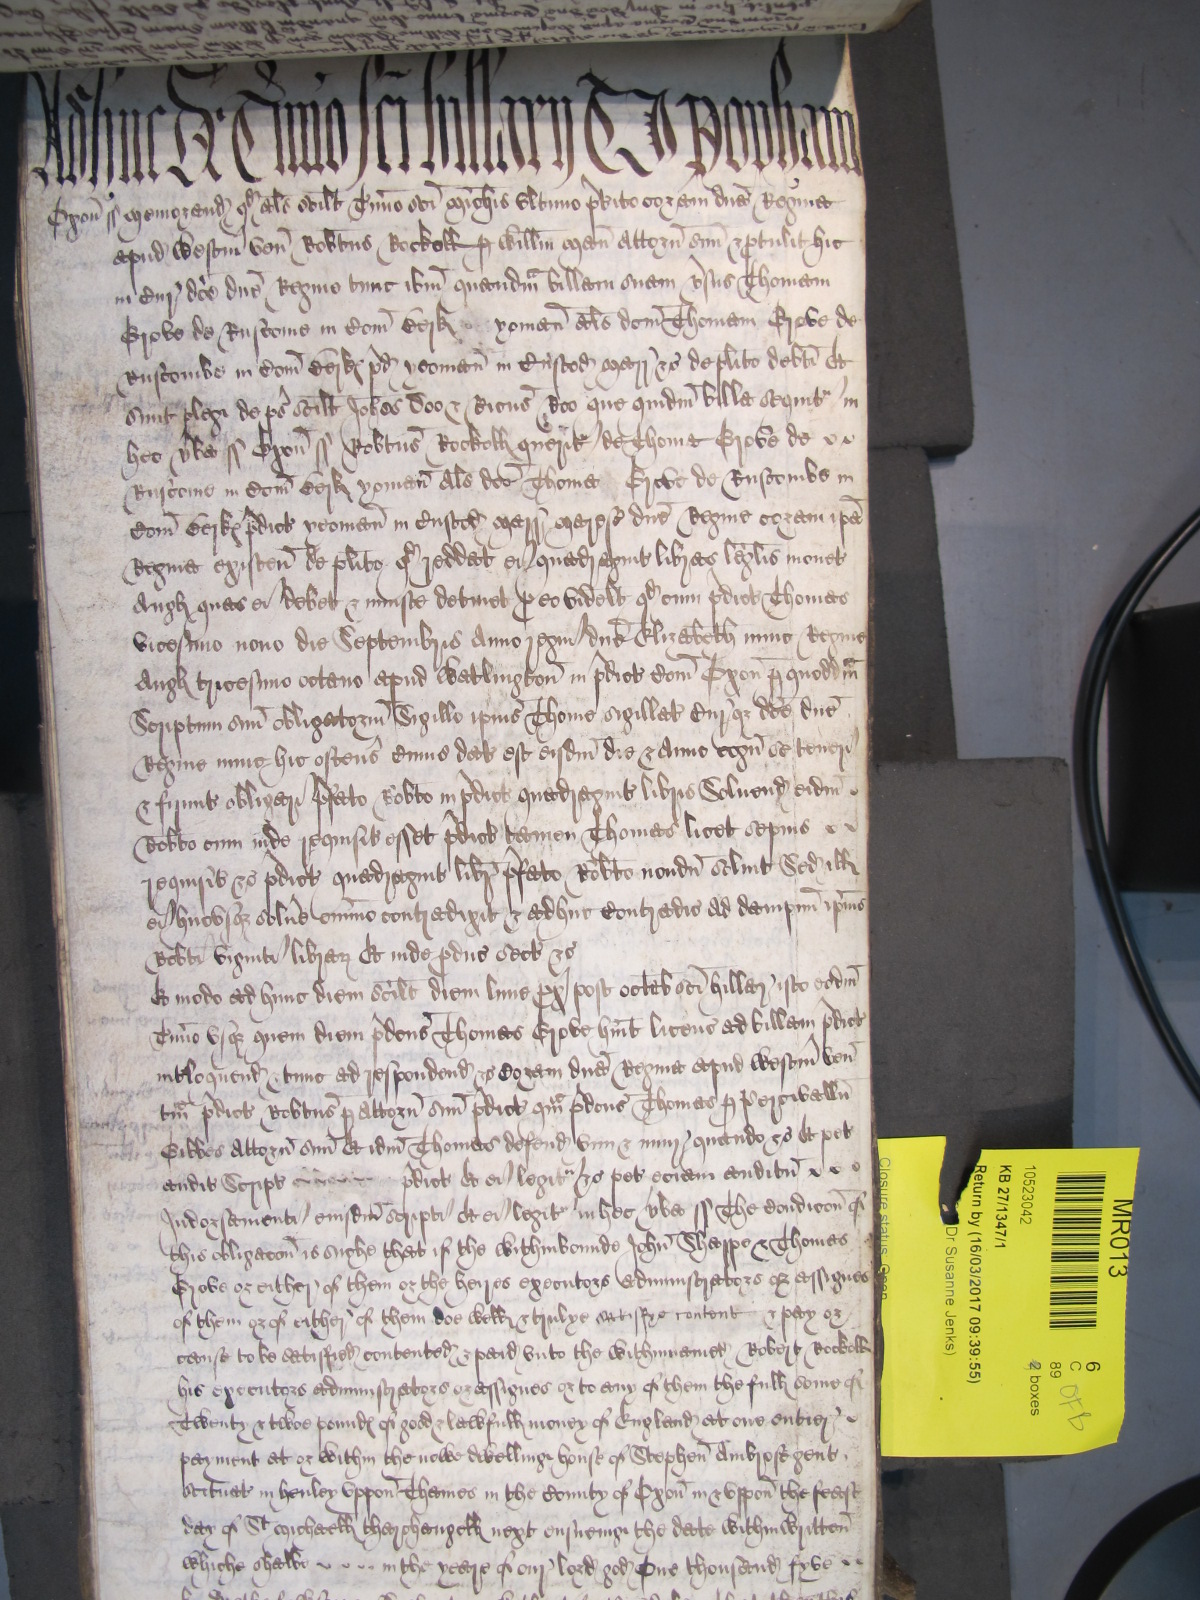 Adhuc De Termino sci hillarij T J Popham
Oxon ss Memorand qd als scilt Tmio sci Michis ultimo prito coram dna Regina
apud Westm ven Robtus Rockoll p Willm Man Attorn suu & ptulit hic
in Cur dce dne Regine tunc ibm quandm billam suam vsus Thomam
Grove de Ruscome in Com Berk yoman als dcm Thomam Grove de
Ruscombe in Com Berk pd yeoman in Custod Marr &c de plito debti Et
sunt plegi de ps scilt Johes Doo & Ricus Roo que quidm billa sequitr in
hec vba ss Oxon ss Robtus Rockoll queritr de Thoma Grove de
Ruscome in Com Berk yoman als dco Thoma Grove de Ruscombe in
Com Berk pdict yeoman in Custod Marr Maresc dne Regine coram ipa
Regina existen de plito qd reddat ei quadragint libras legalis monet
Angl quas ei debet & iniuste detinet p eo videlt qd cum pdict Thomas
vicesimo nono die Septembris Anno regni dne Elizabeth nunc Regine
Angl tricesimo octavo apud Watlington in pdict Com Oxon p quoddm
Scriptum suu obligatorium Sigillo ipius Thome sigillat Curq dce dne
Regine nunc hic ostens Cuius dat est eisdm die & Anno cogn se teneri
& firmit obligari pfato Robto in pdict quadragint libris Solvend eidm
Robto cum inde requisit esset pdict tamen Thomas licet sepius
requisit &c pdict quadragint libr pfato Robto nondu solvit Sed ill
ei hucusq solve omnino contradixit & adhuc contradic Ad dampnu ipius
Robti viginti librar Et inde pduc sect &c
Et modo ad hunc diem scilt diem lune px post octab sci hillar isto eodm
Tmio usq quem diem pdcus Thomas Grove huit licenc ad billam pdict
intloquend & tunc ad respondend &c Coram dna Regina apud Westm ven
tam pdict Robtus p Attorn suu pdict qm pdcus Thomas p Percivallu
Gibbes Attorn suu Et idm Thomas defend vim & iniur quando &c Et pet
audit Script pdict Et ei legitr &c pet eciam auditu
Indorsamenti eiusdm scripti Et ei legitr in hec vba ss The Condicon of
this obligacon is suche that if the withinbounde John Sharpe & Thomas
Grove or either of them or the heires executors administrators or assignes
of them or of either of them doe well & trulye satisfye content & pay or
cause to be satisfied contented & paid unto the withinnamed Robert Rockoll
his executors administrators or assignes or to any of them the full some of
Twenty & twoe pound of good & lawfull money of England at one entier
payment at or within the nowe dwellinge house of Stephen Ambrose gent
scituat in henley uppon Thames in the County of Oxon in & uppon the feast
day of St Michaell tharchangell next ensueinge the date within written
whiche shalbe in the yeare of our lord god One thousand fyve
MR013
6
C
89
2 boxes
OFB
10523042
KB 27/1347/1
Return by (16/03/2017 09:39:55)
Dr Susanne Jenks)
Closure status: Open